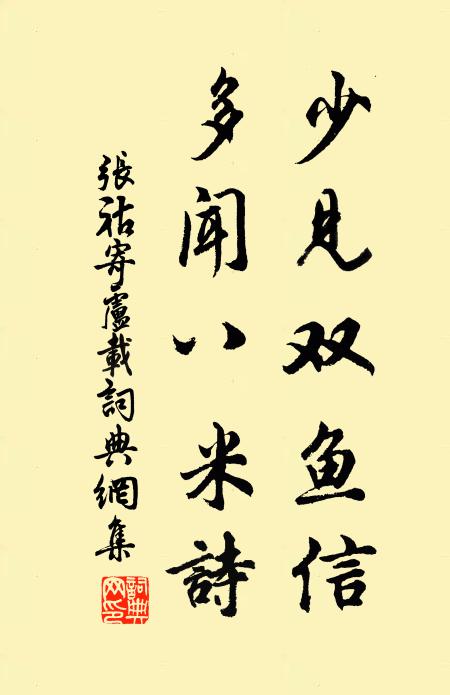 少见双鱼信
多闻八米詩
張祜寄盧載詞典網集
詞典網印